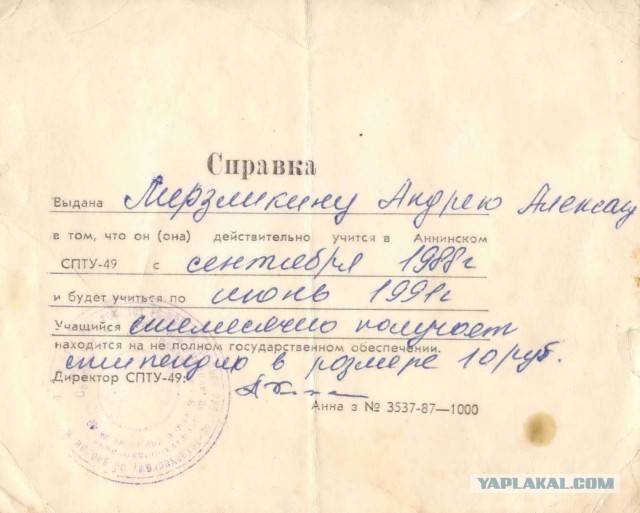 Справка
Выдана Мирзликину Андрею Алексан
в том, что он (она) действительно учится в Аннинском
СПТУ-49 с сентября 1988г
и будет учиться по июнь 1991г
Учащийся ежемесячно получает
находится на не полном государственном обеспечении.
стипендию в размере 10 руб.
Директор СПТУ-49:
Анна з № 3537-87—1000
YAPLAKAL.COM